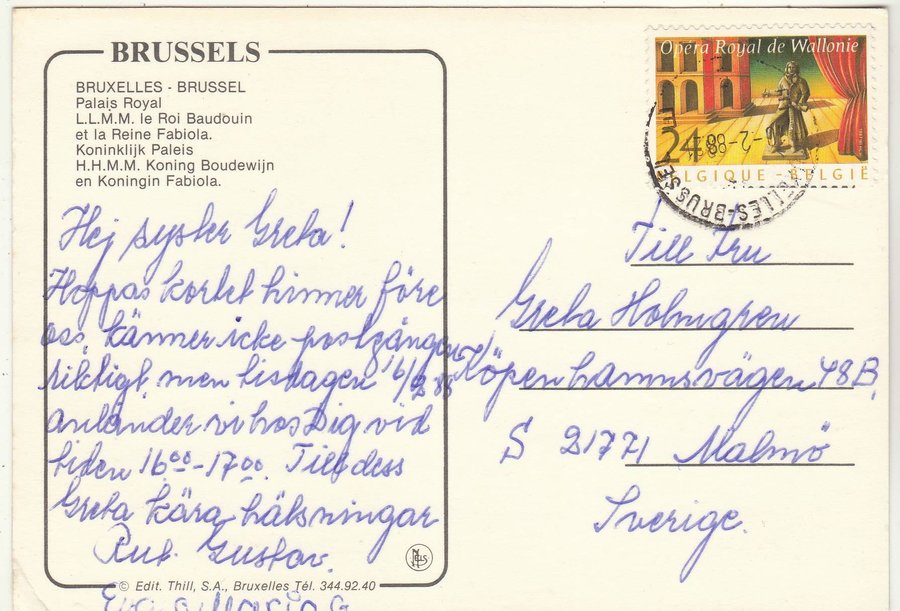 BRUSSELS
BRUXELLES - BRUSSEL
Palais Royal
L.L.M.M. le Roi Baudouin
et la Reine Fabiola.
Koninklijk Paleis
H.H.M.M. Koning Boudewijn
en Koningin Fabiola.
Hej syster Greta!
Hoppas kortet hinner före
oss, känner icke postgången
riktigt, men tisdagen 16/2 88
anländer vi hos Dig vid
tiden 16 00 - 17 00. Till dess
Greta kära hälsningar
Rut. Gustav.
© Edit. Thill, S.A., Bruxelles Tél. 344.92.40
Opéra Royal de Wallonie
24
BELGIQUE - BELGIË
-2-88
ELLES-BRUSSEL
Till Fru
Greta Holmgren
Köpenhamnsvägen 48B,
S 21771 Malmö
Sverige.